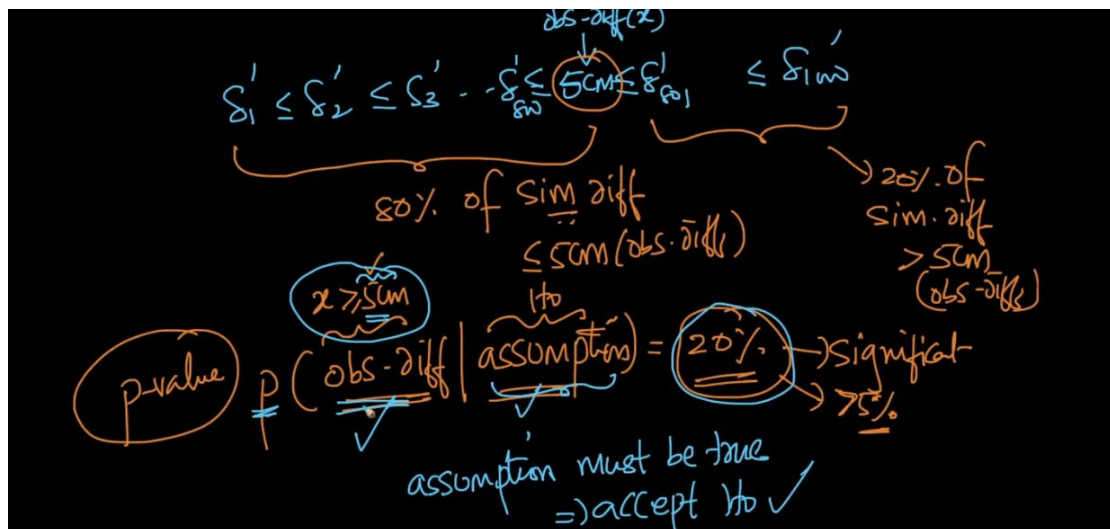 obs-diff(x)
δ₁' ≤ δ₂' ≤ δ₃' - - δ'₈₀₀ ≤ 5cm ≤ δ'₈₀₁ ≤ δ'₁₀₀₀
80% of sim diff
≤ 5cm (obs. diff)
→ 20% of
sim. diff
> 5cm
(obs-diff)
x ≥ 5cm
H₀
p-value P (obs-diff | assumption) = 20% → significat
→ >5%
assumption must be true
⇒ accept H₀ ✓